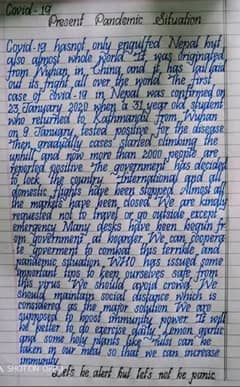 Covid-19
Present Pandemic Situation
Covid-19 hasnot only engulfed Nepal but
also almost whole world. It was originated
from Wuhan in China and it has laid
out its fright all over the world. The first
case of Covid-19 in Nepal was confirmed on
23 January 2020 when a 31 year old student
who returned to Kathmandu from Wuhan
on 9 January, tested positive for the disease.
Then gradually cases started climbing the
uphill and now more than 2000 people are
reported positive. The government has decided
to lock the country. International and
domestic flights have been stopped. Almost all
the markets have been closed. We are kindly
requested not to travel or go outside except
emergency. Many desks have been begun fr
om government at boarder. We can coopera
te government to combat this terrible and
pandemic situation. WHO has issued some
important tips to keep ourselves safe from
this virus. We should avoid crowd. We
should maintain social distance which is
considered as the major solution. We are
supposed to boost immunity power. It will
be better to do exercise daily. Lemon, garlic
and some holy plants like Tulsi can be
taken in our meal so that we can increase
immunity.
Let's be alert but lets not be panic.
SHOT ON